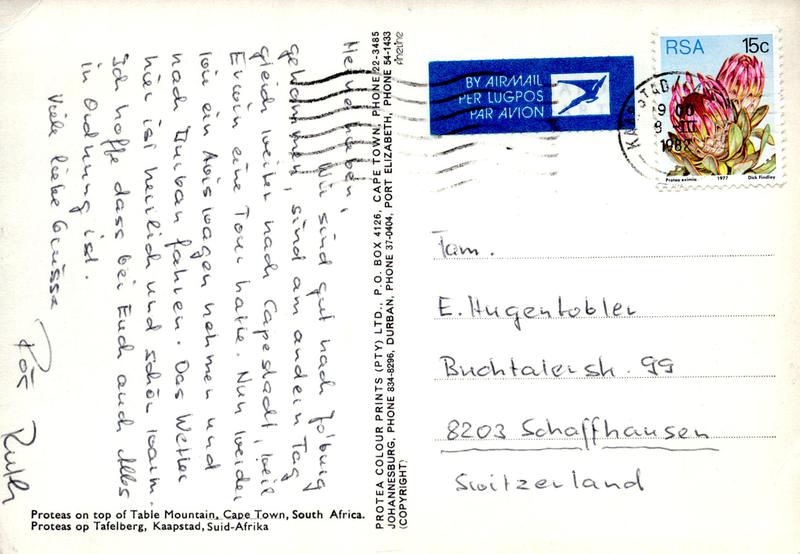 Meine Lieben!
Wir sind gut nach Jo'burg
gekommen, sind am andern Tag
gleich weiter nach Capestadt, weil
Erwin eine Tour hatte. Nun werden
wir ein Avis wagen nehmen und
nach Durban fahren. Das Wetter
hier ist herrlich und schön warm.
Ich hoffe dass bei Euch auch Alles
in Ordnung ist.
Viele liebe Grüsse
Ruth
Proteas on top of Table Mountain, Cape Town, South Africa.
Proteas op Tafelberg, Kaapstad, Suid-Afrika
PROTEA COLOUR PRINTS (PTY) LTD., P.O. BOX 4126, CAPE TOWN, PHONE 22-3485
JOHANNESBURG, PHONE 834-8296, DURBAN, PHONE 37-0404, PORT ELIZABETH, PHONE 54-1433
(COPYRIGHT)
BY AIRMAIL
PER LUGPOS
PAR AVION
RSA 15c
Protea eximia 1977 Dick Findlay
KAAPSTAD
9 00
III
1982
Fam.
E. Hugentobler
Buchtalerstr. 99
8203 Schaffhausen
Switzerland